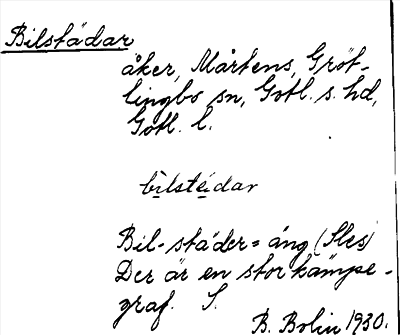 Bilstädar
åker, Mårtens, Gröt-
lingbo sn, Gotl. s. hd,
Gotl. l.
bilstädar
Bil-städer = äng (Sles)
Der är en stor kämpe-
graf. S.
B. Bolin 1930.